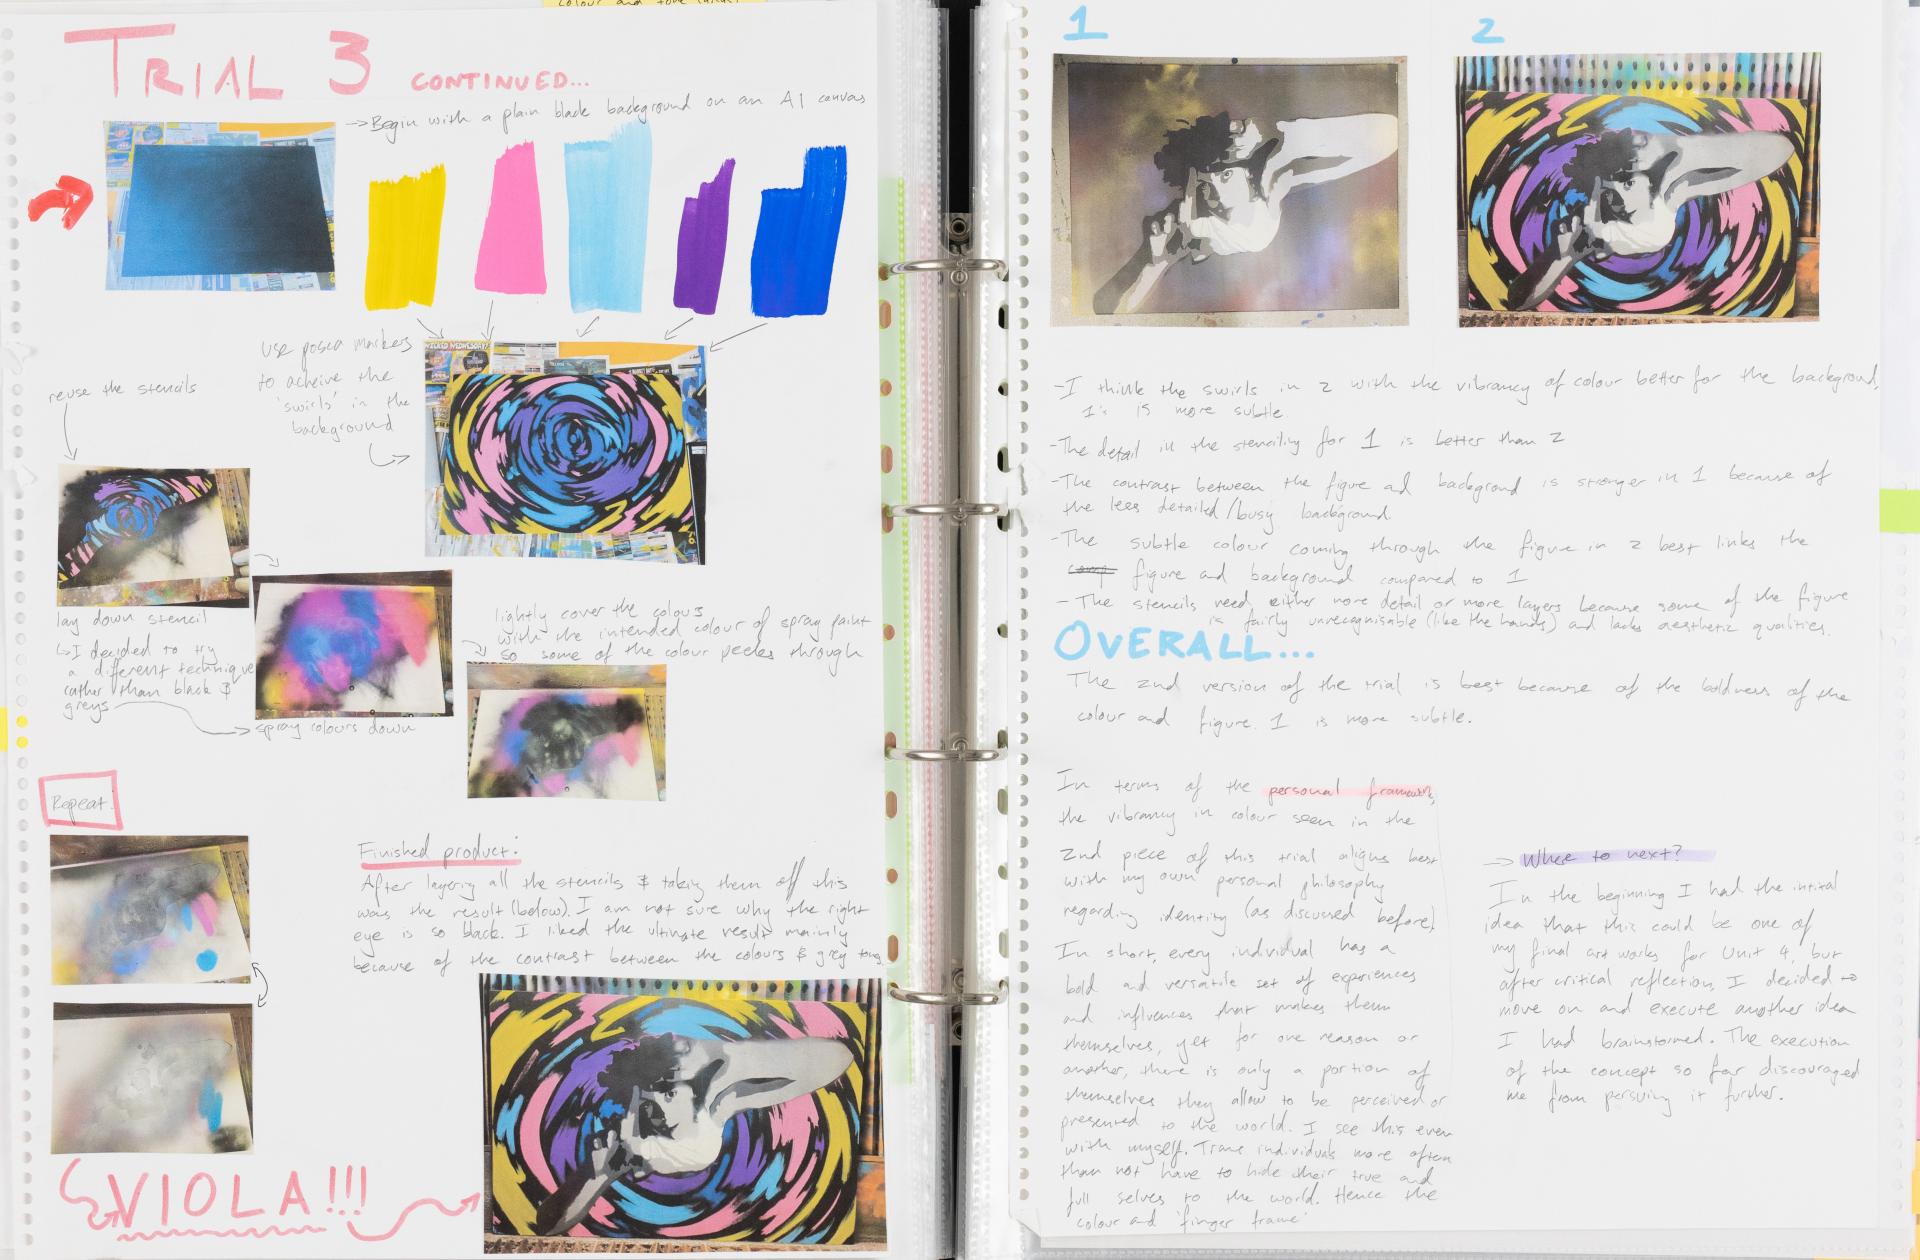 colour and tone
TRIAL 3 CONTINUED...
→Begin with a plain black background on an A1 canvas
use posca markers
to acheive the
'swirls' in the
background
reuse the stencils
WICKED WEDNESDAY!
lay down stencil
↳I decided to try
a different technique
rather than black &
greys
spray colours down
lightly cover the colours
with the intended colour of spray paint
so some of the colour peeks through
Repeat.
Finished product:
After layering all the stencils & taking them off this
was the result (below). I am not sure why the right
eye is so black. I liked the ultimate result mainly
because of the contrast between the colours & grey tones
VIOLA!!!
1
2
-I think the swirls in 2 with the vibrancy of colour better for the background,
1's is more subtle
-The detail in the stenciling for 1 is better than 2
-The contrast between the figure and background is stronger in 1 because of
the less detailed/busy background.
-The subtle colour coming through the figure in 2 best links the
figure and background compared to 1
-The stencils need either more detail or more layers because some of the figure
is fairly unrecognisable (like the hands) and lacks aesthetic qualities.
OVERALL...
The 2nd version of the trial is best because of the boldness of the
colour and figure. 1 is more subtle.
In terms of the personal framework,
the vibrancy in colour seen in the
2nd piece of this trial aligns best
with my own personal philosophy
regarding identity (as discussed before).
In short, every individual has a
bold and versatile set of experiences
and influences that makes them
themselves, yet for one reason or
another, there is only a portion of
themselves they allow to be perceived or
presented to the world. I see this even
with myself. Trans individuals more often
than not have to hide their true and
full selves to the world. Hence the
colour and 'finger frame'
→ Where to next?
In the beginning I had the intital
idea that this could be one of
my final art works for Unit 4, but
after critical reflection, I decided to
move on and execute another idea
I had brainstormed. The execution
of the concept so far discouraged
me from persuing it further.